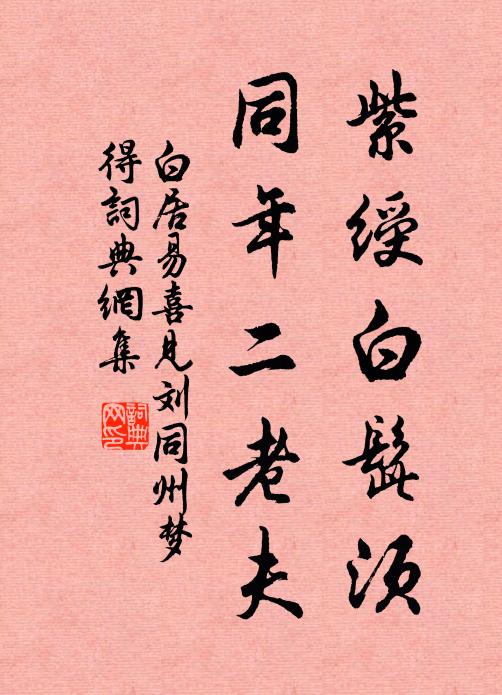 紫绶白髭须
同年二老夫
白居易喜见刘同州梦
得詞典網集
詞典
网印